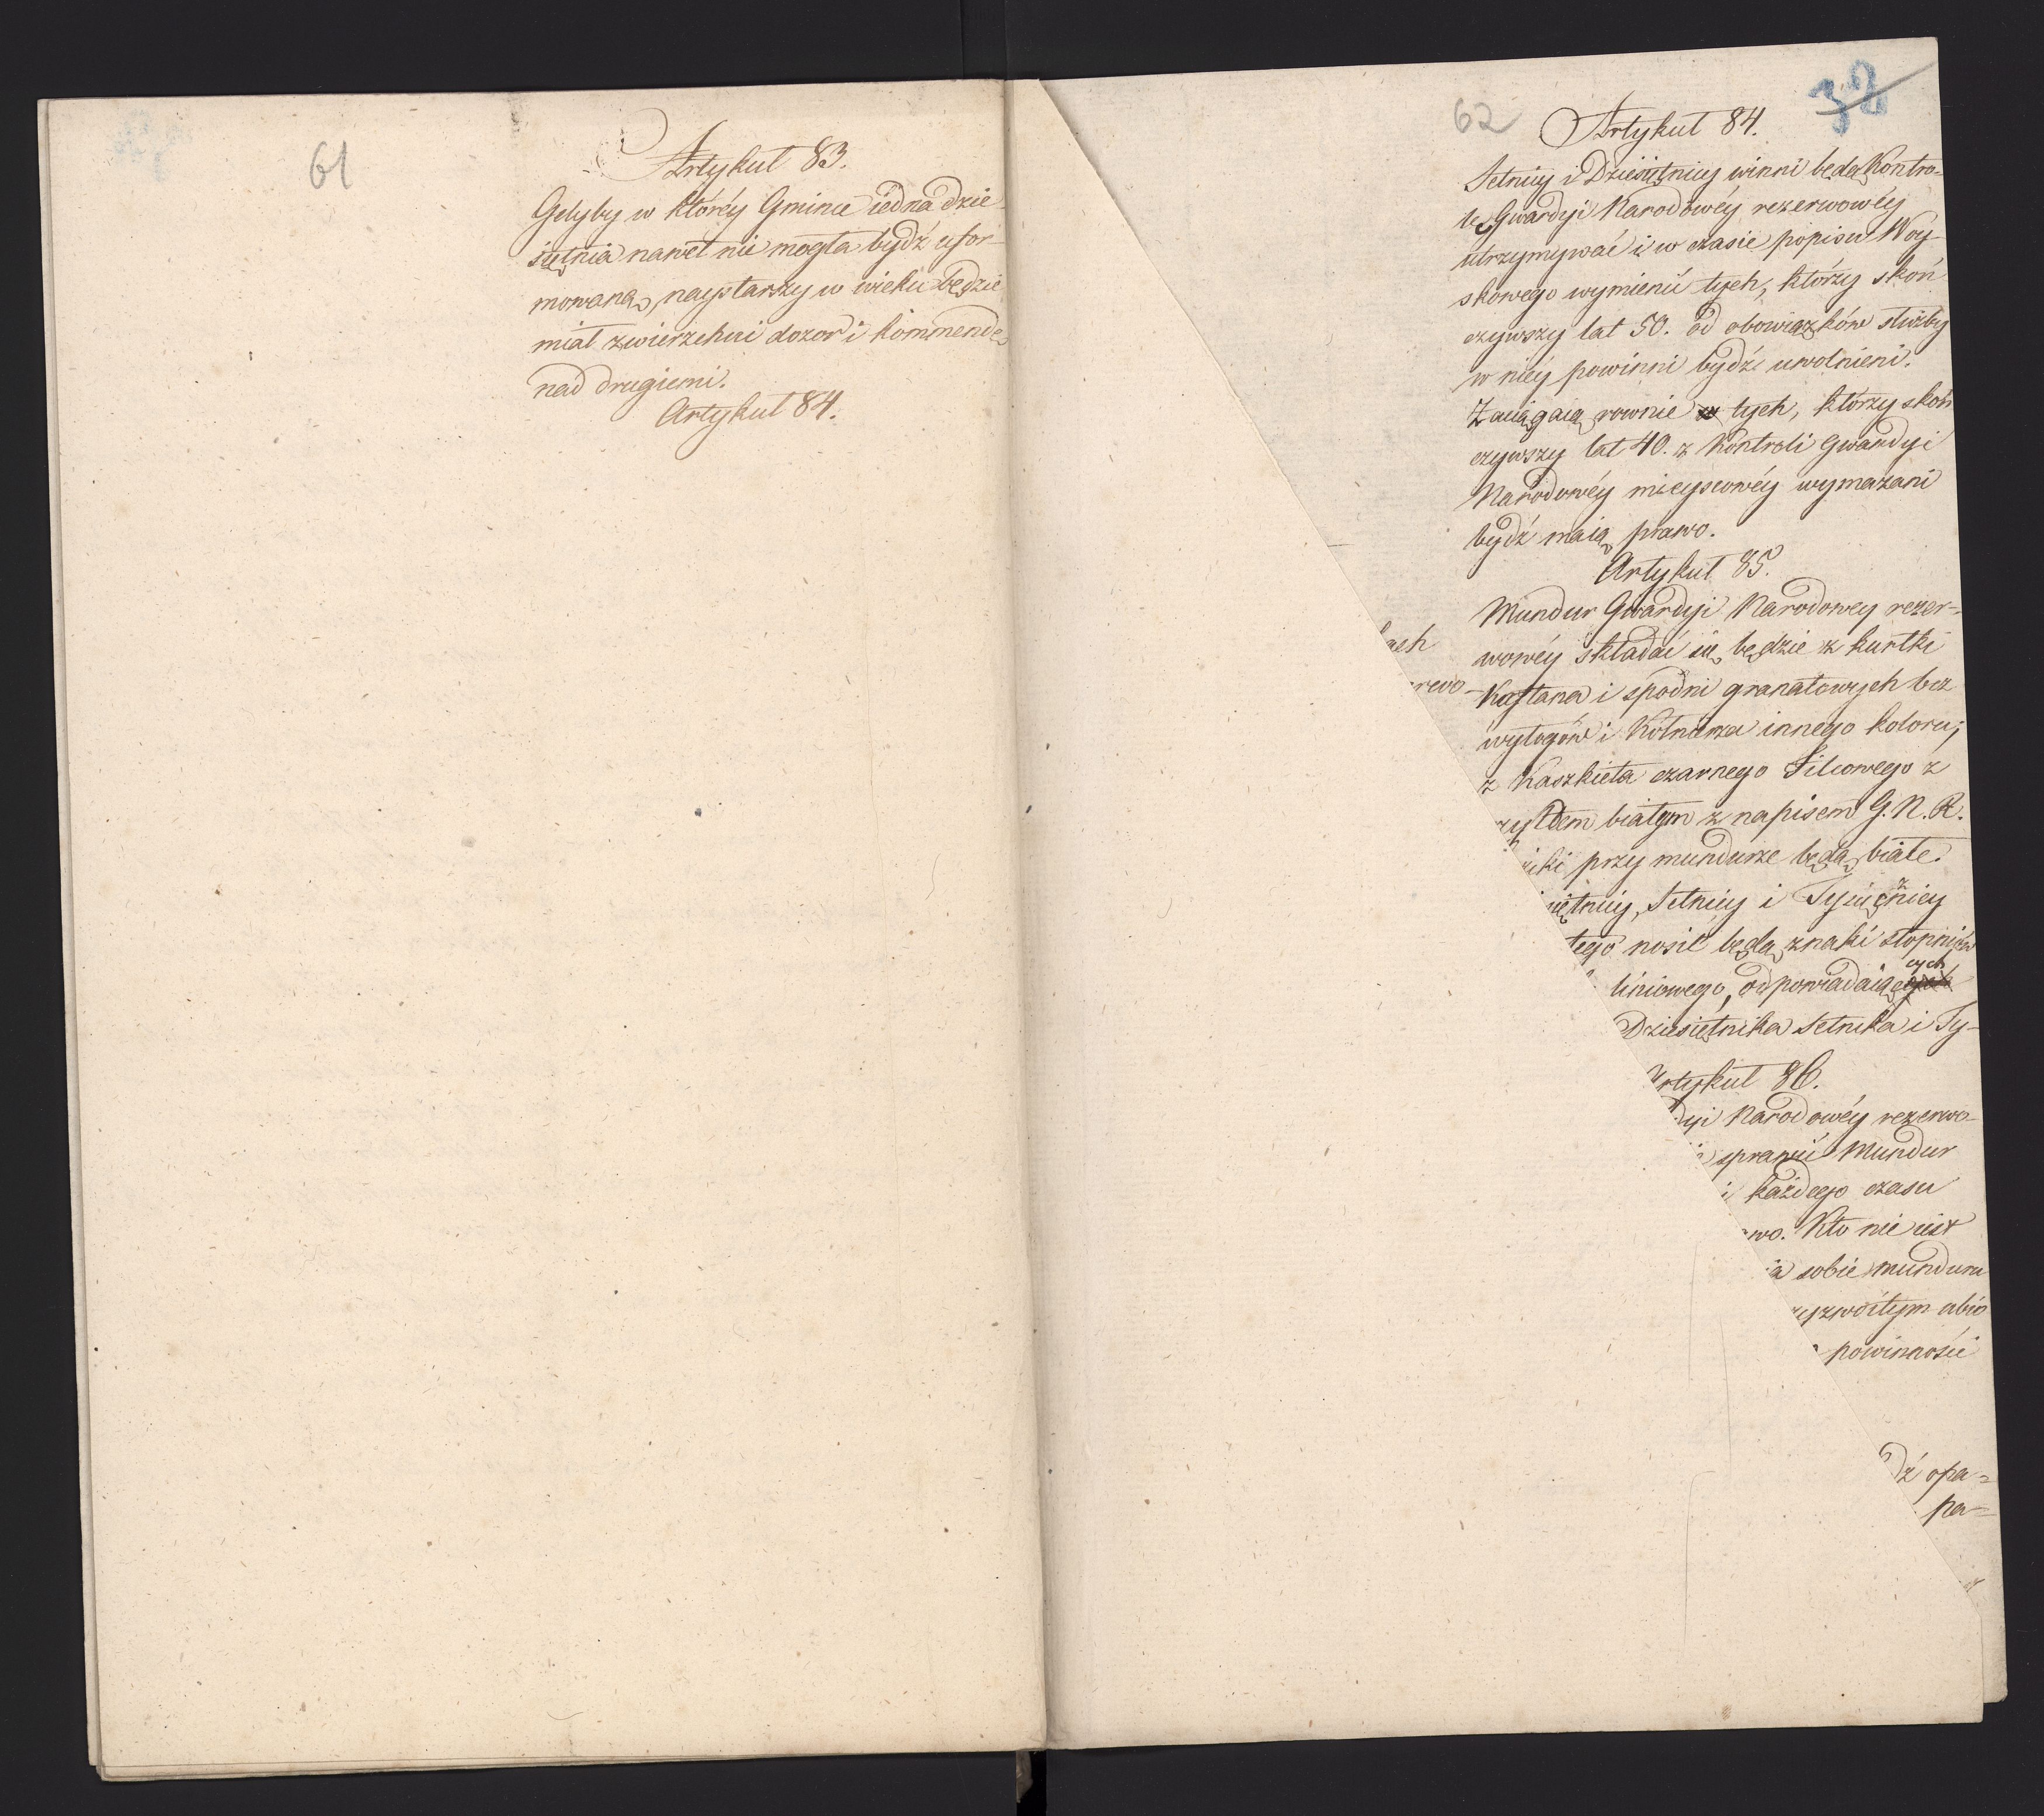 61
Artykuł 83.
Gdyby w któréy Gminie iedna dzie-
siętnia nawet nie mogła bydź ufor-
mowaną, naystarszy w wieku będzie
miał zwierzchni dozor i kommendę
nad drugiemi.
Artykuł 84.
62
32
Artykuł 84.
Setnicy i Dziesiętnicy winni będą Kontro-
lę Gwardyi Narodowéy rezerwowéy
utrzymywać i w czasie popisu Woy-
skowego wymienić tych, którzy skoń
czywszy lat 50. od obowiązków służby
w niéy powinni bydź uwolnieni.
Zaciągaią rownie tych, którzy skoń
czywszy lat 40. z Kontroli Gwardyi
Narodowéy mieyscowéy wymazani
bydź maią prawo.
Artykuł 85.
Mundur Gwardyi Narodowey rezer-
wowéy składać się będzie z kurtki
Kaftana i spodni granatowych bez
wyłogów i Kołnierza innego koloru;
z Kaszkieta czarnego Filcowego z
zyldem białym z napisem G. N. R.
iki przy mundurze będą białe.
iętnicy, Setnicy i Tysięcznicy
tego nosić będą znaki stopniów
liniowego, odpowiadaiących
Dziesiętnika Setnika i Ty-
Artykuł 86.
dyi Narodowéy rezerwo-
sprawić Mundur
i każdego czasu
wo. Kto nie iest
ia sobie munduru
zyzwoitym ubio
powinności
dź opa-
pa-
ach
rewo-